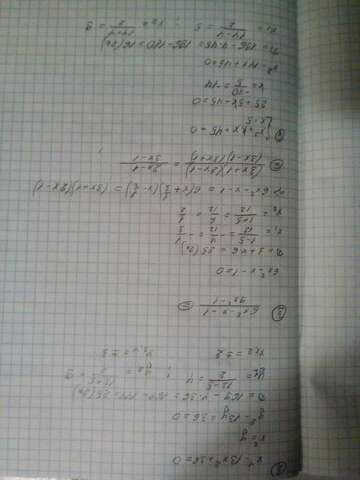 x⁴ - 13x² + 36 = 0
x² = y
y² - 13y + 36 = 0
D = 169 - 4·36 = 169 - 144 = 25 (2к)
y₁ = (13-5)/2 = 4 ; y₂ = (13+5)/2 = 9
x₁,₂ = ±2 x₃,₄ = ±3
(6x² - x - 1)/(9x² - 1) =
6x² - x - 1 = 0
D = 1 + 4·6 = 25 (2к)
x₁ = (1-5)/12 = -4/12 = -1/3
x₂ = (1+5)/12 = 6/12 = 1/2
=> 6x² - x - 1 = 6(x + 1/3)(x - 1/2) = (3x+1)(2x-1)
= ((3x+1)(2x-1))/((3x-1)(3x+1)) = (2x-1)/(3x-1)
{ x² + kx + 45 = 0
x = 5
25 + 5k + 45 = 0
k = -70/5 = -14
x² - 14x + 45 = 0
D = 196 - 4·45 = 196 - 180 = 16 (2к)
x₁ = (14-4)/2 = 5 ; x₂ = (14+4)/2 = 9